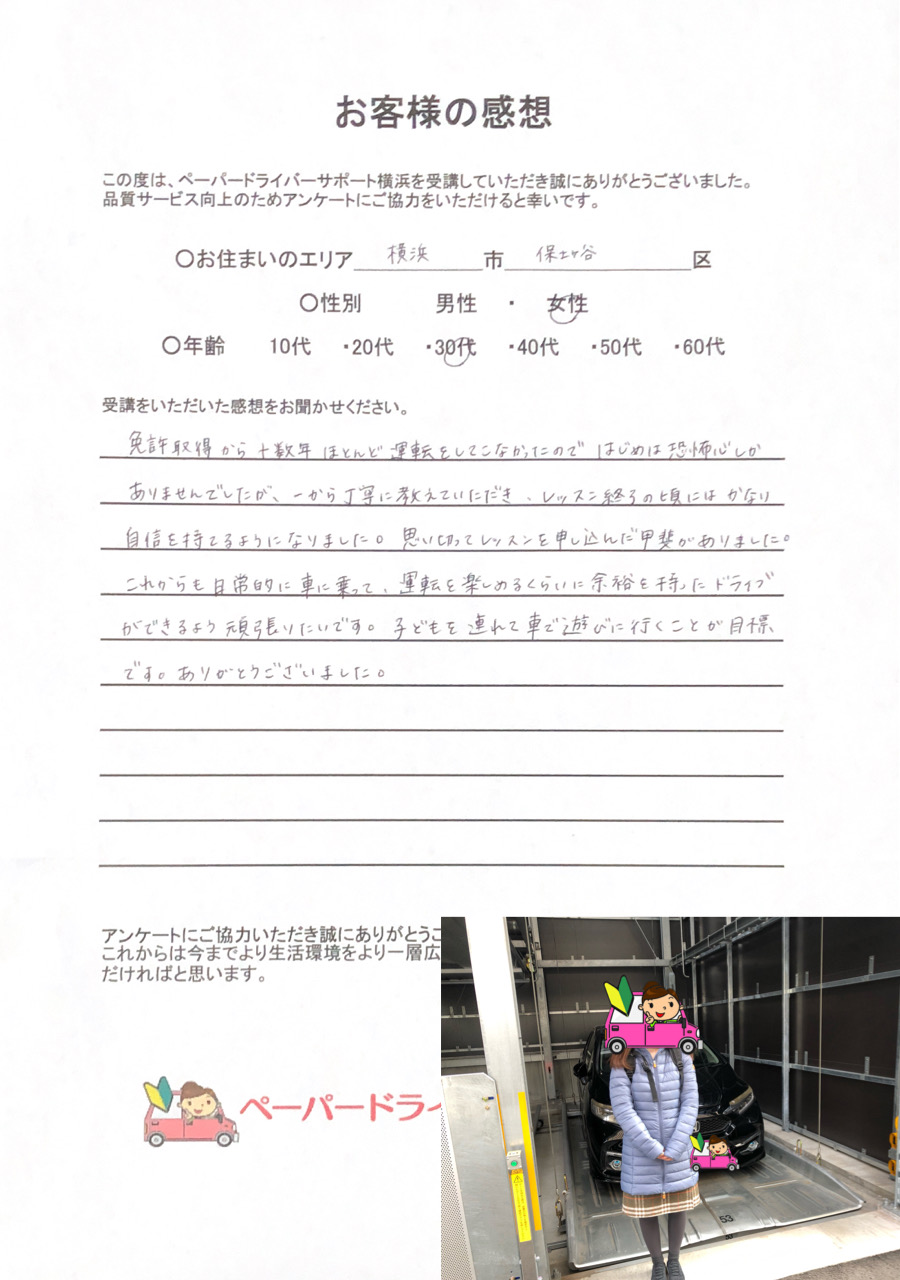 お客様の感想
この度は、ペーパードライバーサポート横浜を受講していただき誠にありがとうございました。
品質サービス向上のためアンケートにご協力をいただけると幸いです。
〇お住まいのエリア 横浜 市 保土ヶ谷 区
〇性別 男性 ・ 女性
〇年齢 10代 ・20代 ・30代 ・40代 ・50代 ・60代
受講をいただいた感想をお聞かせください。
免許取得から十数年ほとんど運転をしてこなかったので はじめは恐怖心しか
ありませんでしたが、一から丁寧に教えていただき、レッスン終了の頃には かなり
自信を持てるようになりました。思い切ってレッスンを申し込んだ甲斐がありました。
これからも日常的に車に乗って、運転を楽しめるくらいに余裕を持ったドライブ
ができるよう頑張りたいです。子どもを連れて車で遊びに行くことが目標
です。ありがとうございました。
アンケートにご協力いただき誠にありがとうご
これからは今までより生活環境をより一層広
だければと思います。
ペーパードライ
53